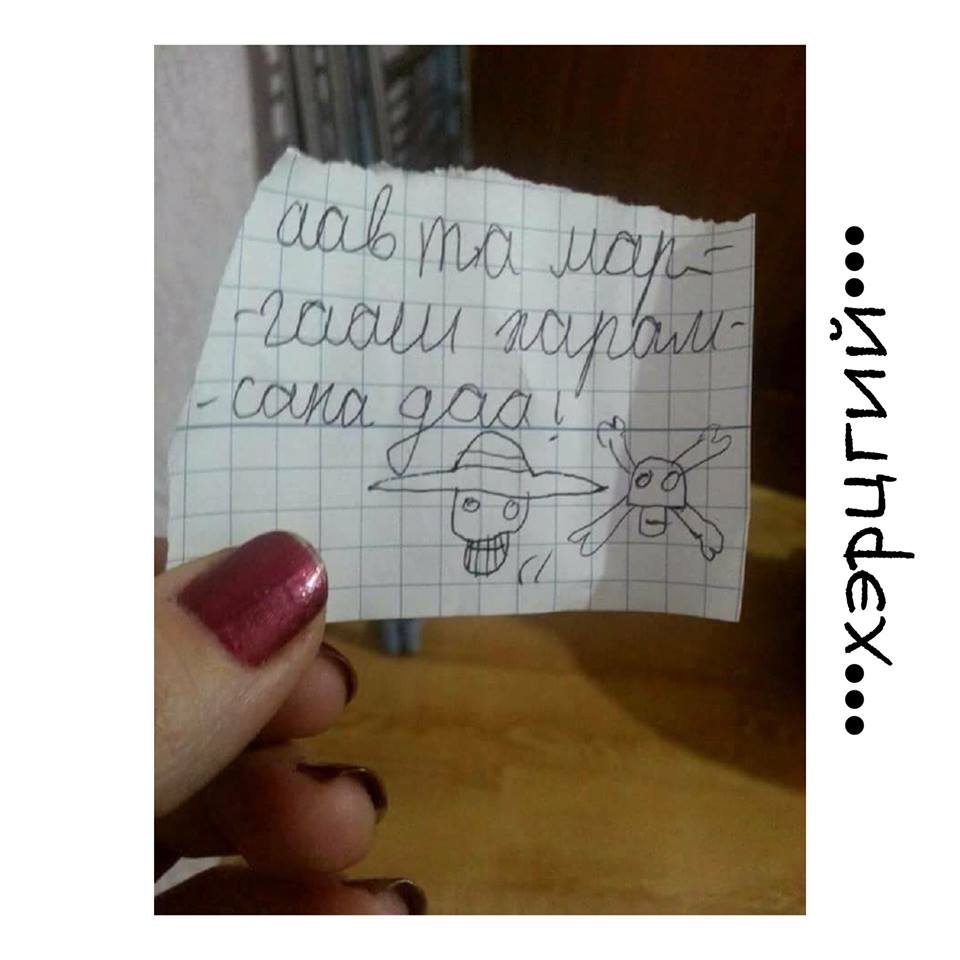 аав та мар-
-гааш харам-
-сана даа!
...хэрцгий...